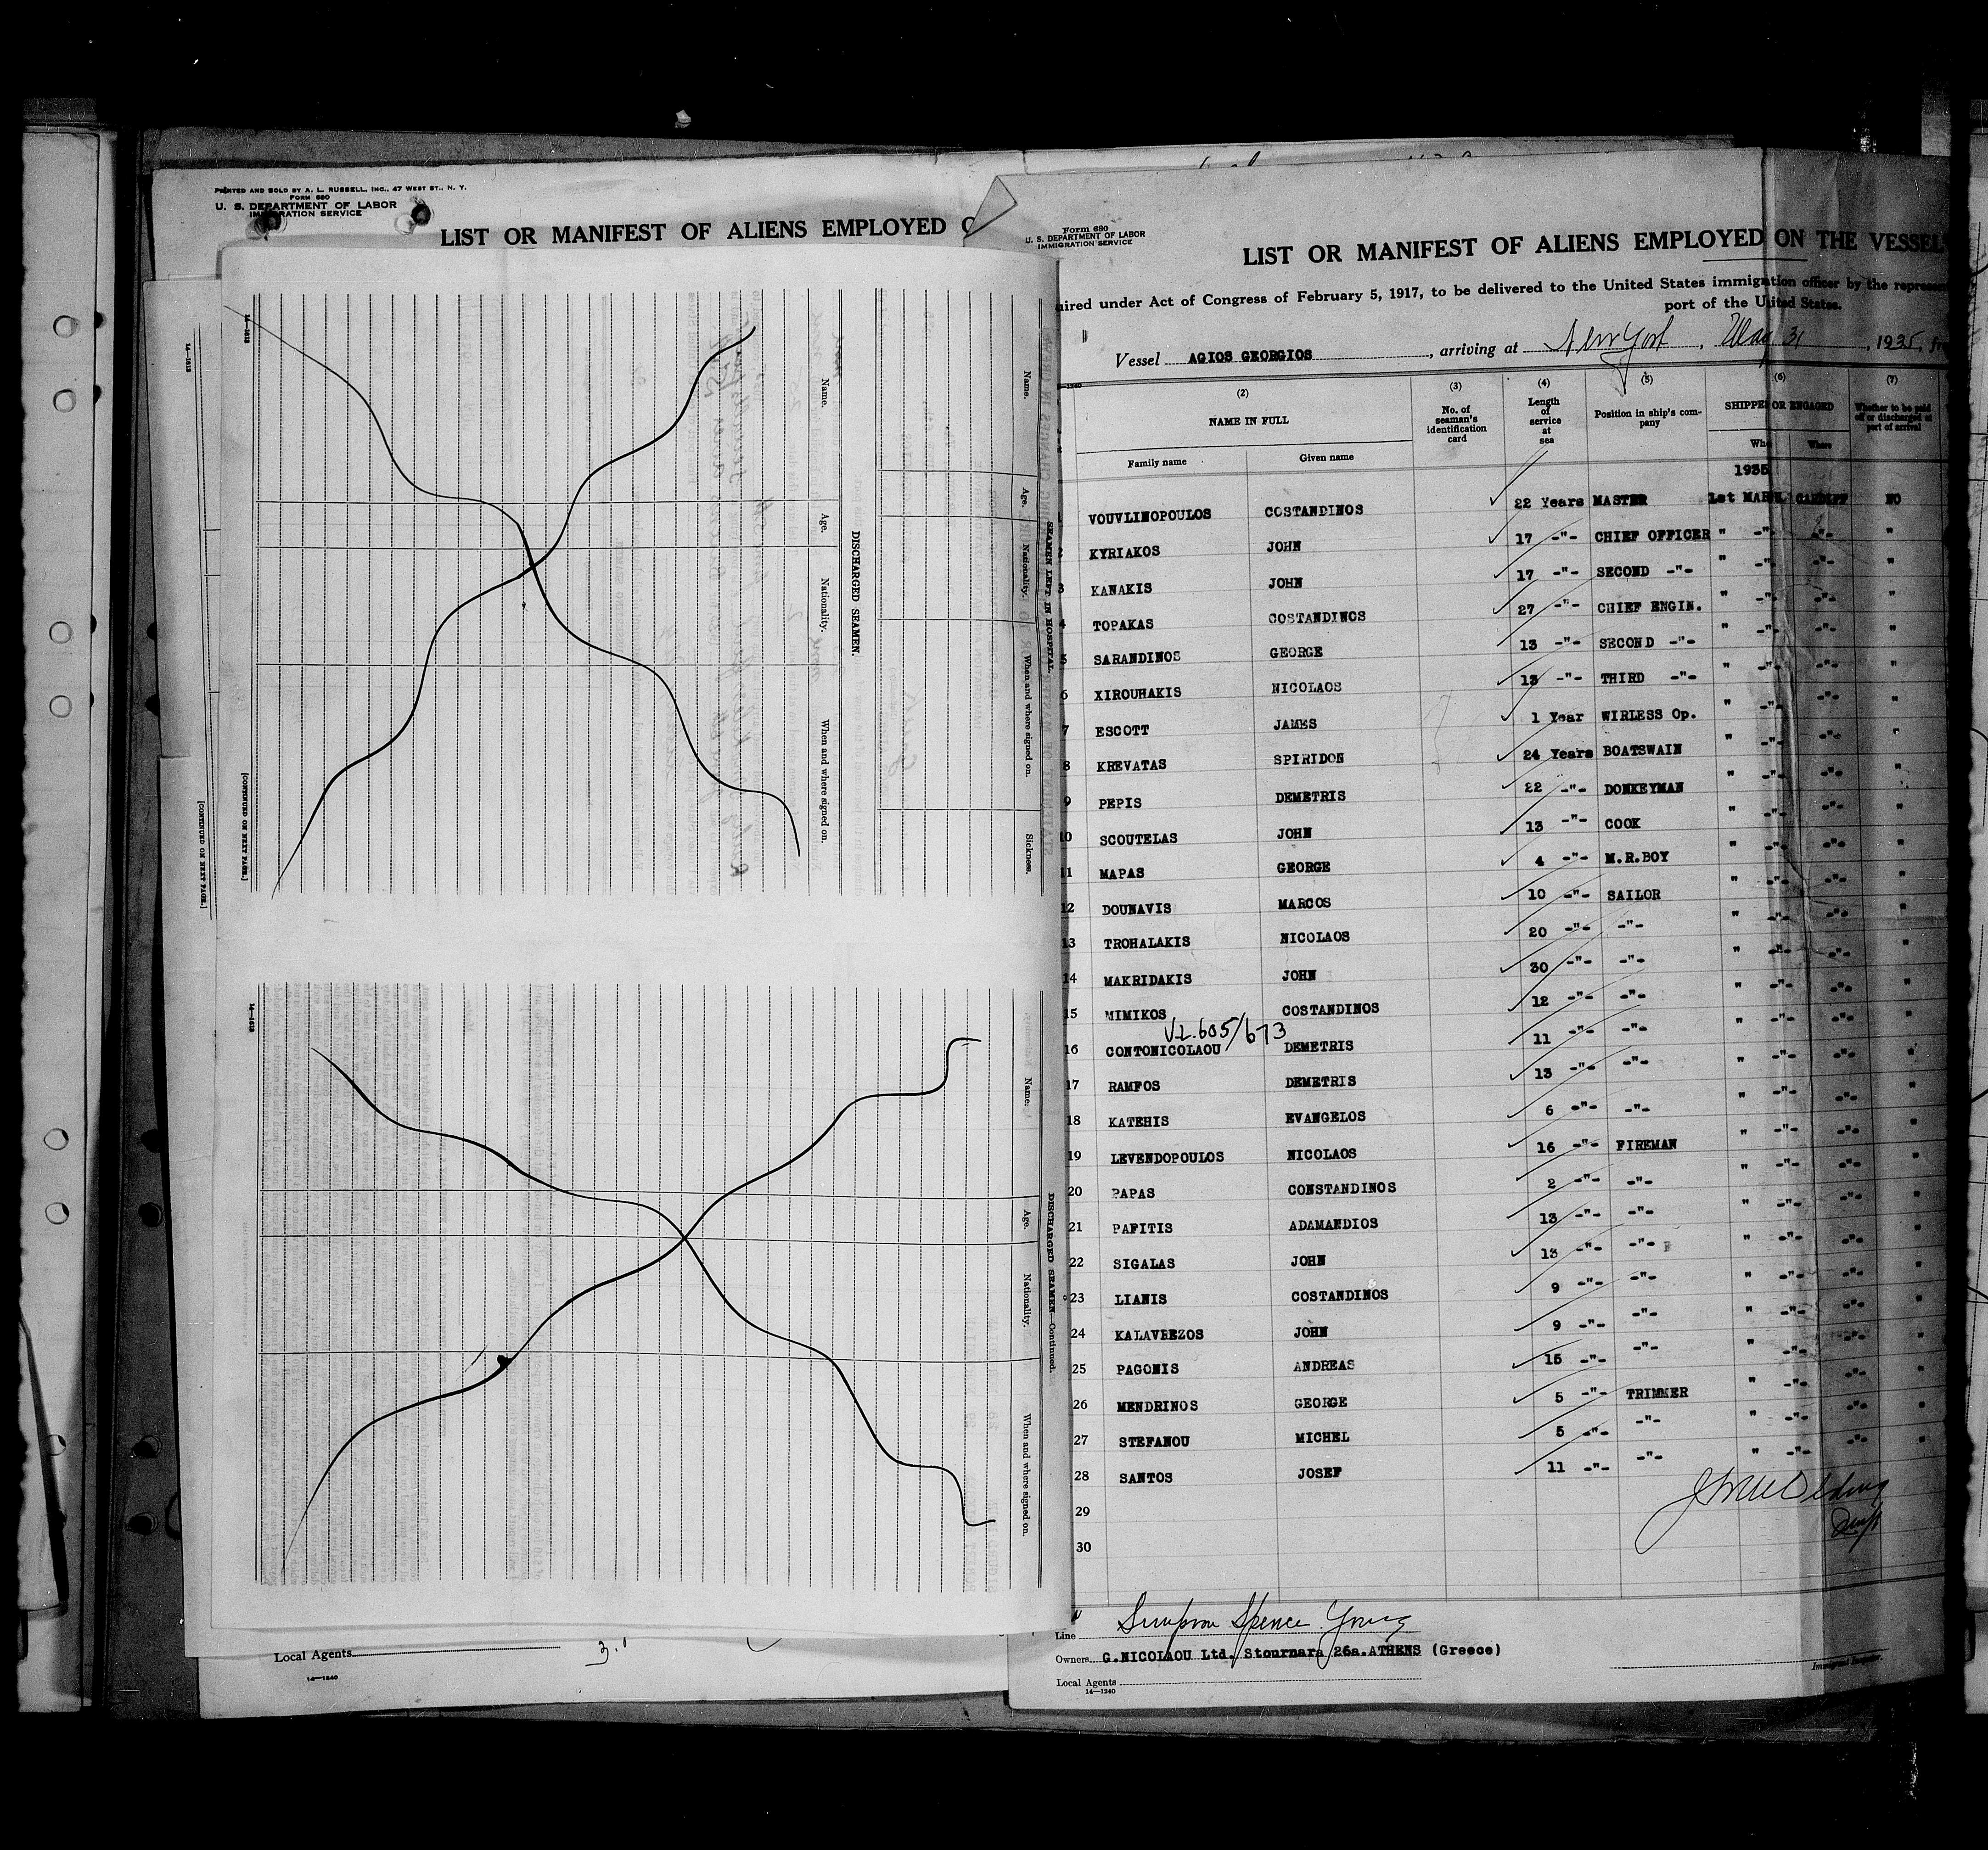 PRINTED AND SOLD BY A. L. RUSSELL, INC., 47 WEST ST., N. Y.
FORM 680
U. S. DEPARTMENT OF LABOR
IMMIGRATION SERVICE
LIST OR MANIFEST OF ALIENS EMPLOYED
14—1813
Name.
Age.
Nationality.
When and where signed on.
DISCHARGED SEAMEN.
[CONTINUED ON NEXT PAGE.]
SEAMEN LEFT IN HOSPITAL.
Name.
Age.
Nationality.
When and where signed on.
Sickness.
14—1813
[CONTINUED ON NEXT PAGE.]
14—1813
DISCHARGED SEAMEN—Continued.
Name.
Age.
Nationality.
When and where signed on.
Local Agents
14—1240
Form 680
U. S. DEPARTMENT OF LABOR
IMMIGRATION SERVICE
LIST OR MANIFEST OF ALIENS EMPLOYED ON THE VESSEL
uired under Act of Congress of February 5, 1917, to be delivered to the United States immigration officer by the represen
port of the United States.
Vessel AGIOS GEORGIOS, arriving at New York, May 31, 1935, fr
(2) (3) (4) (5) (6) (7)
NAME IN FULL No. of seaman's identification card Length of service at sea Position in ship's company SHIPPED OR ENGAGED Whether to be paid off or discharged at port of arrival
Family name Given name Whe Where
1935
VOUVLINOPOULOS COSTANDINOS 22 Years MASTER 1st MARH. CARDIFF NO
2 KYRIAKOS JOHN 17 -"- CHIEF OFFICER " -"- -"- "
3 KANAKIS JOHN 17 -"- SECOND -"- " -"- -"- "
4 TOPAKAS COSTANDINOS 27 -"- CHIEF ENGIN. " -"- -"- "
5 SARANDINOS GEORGE 13 -"- SECOND -"- " -"- -"- "
6 XIROUHAKIS NICOLAOS 13 -"- THIRD -"- " -"- -"- "
7 ESCOTT JAMES 1 Year WIRLESS Op. " -"- -"- "
8 KREVATAS SPIRIDON 24 Years BOATSWAIN " -"- -"- "
9 PEPIS DEMETRIS 22 -"- DONKEYMAN " -"- -"- "
10 SCOUTELAS JOHN 13 -"- COOK " -"- -"- "
11 MAPAS GEORGE 4 -"- M.R.BOY " -"- -"- "
12 DOUNAVIS MARCOS 10 -"- SAILOR " -"- -"- "
13 TROHALAKIS NICOLAOS 20 -"- -"- " -"- -"- "
14 MAKRIDAKIS JOHN 30 -"- -"- " -"- -"- "
15 MIMIKOS COSTANDINOS 12 -"- -"- " -"- -"- "
VL.605/673
16 CONTONICOLAOU DEMETRIS 11 -"- -"- " -"- -"- "
17 RAMFOS DEMETRIS 13 -"- -"- " -"- -"- "
18 KATEHIS EVANGELOS 6 -"- -"- " -"- -"- "
19 LEVENDOPOULOS NICOLAOS 16 -"- FIREMAN " -"- -"- "
20 PAPAS CONSTANDINOS 2 -"- -"- " -"- -"- "
21 PAFITIS ADAMANDIOS 13 -"- -"- " -"- -"- "
22 SIGALAS JOHN 13 -"- -"- " -"- -"- "
23 LIANIS COSTANDINOS 9 -"- -"- " -"- -"- "
24 KALAVREZOS JOHN 9 -"- -"- " -"- -"- "
25 PAGONIS ANDREAS 15 -"- -"- " -"- -"- "
26 MENDRINOS GEORGE 5 -"- TRIMMER " -"- -"- "
27 STEFANOU MICHEL 5 -"- -"- " -"- -"- "
28 SANTOS JOSEF 11 -"- -"- " -"- -"- "
29
30
Line Simpson Spence Young
Owners G.NICOLAOU Ltd. Stournara 26a.ATHENS (Greece)
Local Agents
14—1240
Immigrant Inspector.